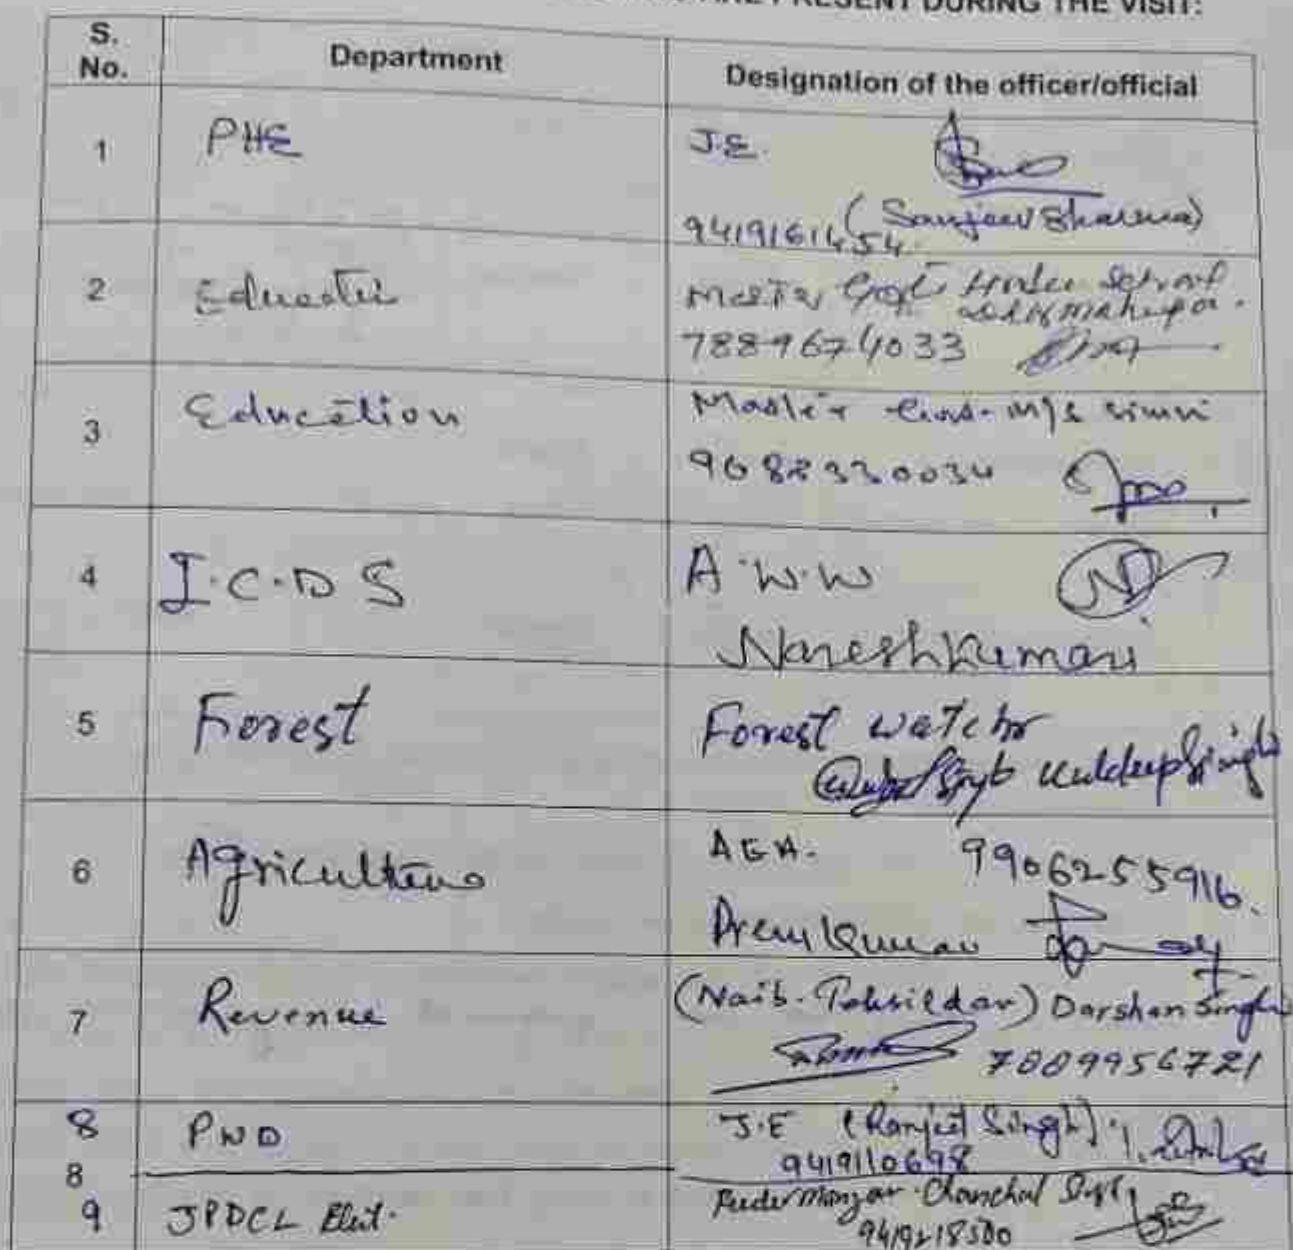 PRESENT DURING THE VISIT:
S. No.
Department
Designation of the officer/official
1
PHE
J.E.
(Sanjeev Sharma)
9419161454.
2
Master Govt
7889674033
3
Education
Master
9682330034
4
I.C.D.S
A.W.W
Naresh Kumari
5
Forest
Forest watchr
Kuldeep Singh
6
Agriculture
AEA. 9906255916.
Prem Kumar
7
Revenue
(Naib-Tehsildar) Darshan Singh
7889956721
8
PWD
J.E (Ranjeet Singh)
9419110698
8
9
JPDCL Elect.
Chanchal Singh
9419218500